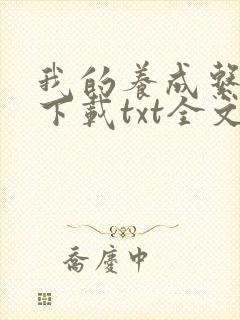 我的养成繫
下載txt全文
喬慶中